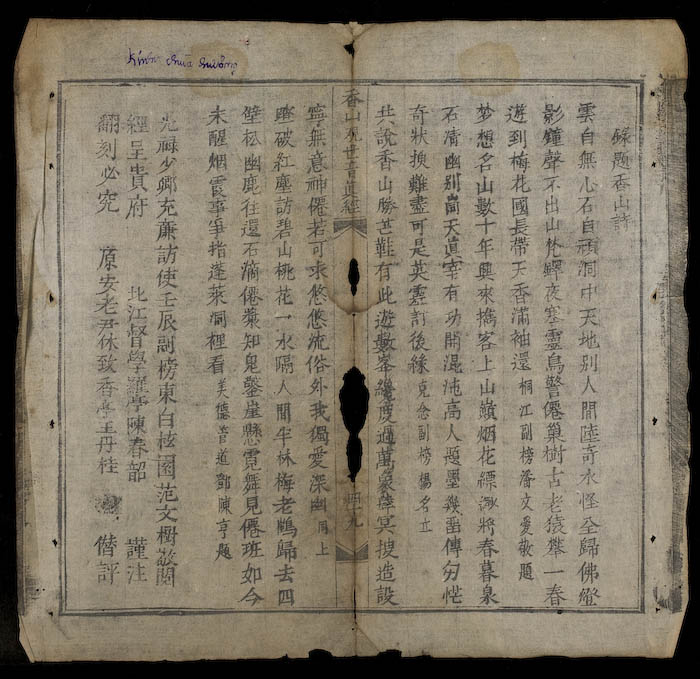 kinh chùa hương
錄題香山詩
雲自無心石自頑洞中天地别人間陸奇水怪全歸佛燈
影鐘聲不出山梵鐸夜寒靈鳥警僊巢樹古老猿攀一春
遊到梅花國長帶天香滿袖還 桐江副榜潘文愛敬題
梦想名山數十年興來擕客上山巔烟花縹渺將春暮泉
石清幽别崮天眞宰有功開混沌高人題墨幾畨傳匆忙
奇狀摸難盡可是英靈訂後緣 克念副榜楊名立
共說香山勝芒鞋有此遊數峯纔度過萬象肆冥搜造設
香山观世音眞經 四十九
寧無意神僊若可求悠悠流俗外我獨愛深幽 同上
踏破紅塵訪碧山桃花一水隔人間半林梅老鶴歸去四
壁松幽鹿往還石滴僊漿知鬼鑿崖懸霓舞見僊班如今
未醒烟霞事爭指蓬萊洞裡看 美德音道鄧陳亨題
光祿少卿充廉訪使壬辰副榜東白桉園范文樹敬閱
經呈貴府 北江督學羅亭陳春韶 謹注
翻刻必究 原安老尹休致香亭王丹桂 偕評